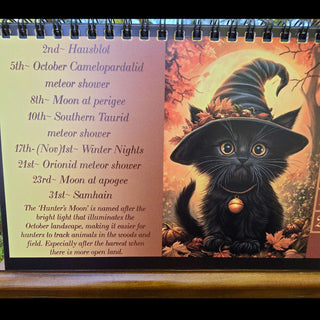 2nd~ Hausblot
5th~ October Camelopardalid
meteor shower
8th~ Moon at perigee
10th~ Southern Taurid
meteor shower
17th-(Nov)1st~ Winter Nights
21st~ Orionid meteor shower
23rd~ Moon at apogee
31st~ Samhain
The 'Hunter's Moon' is named after the
bright light that illuminates the
October landscape, making it easier for
hunters to track animals in the woods and
field. Especially after the harvest when
there is more open land.